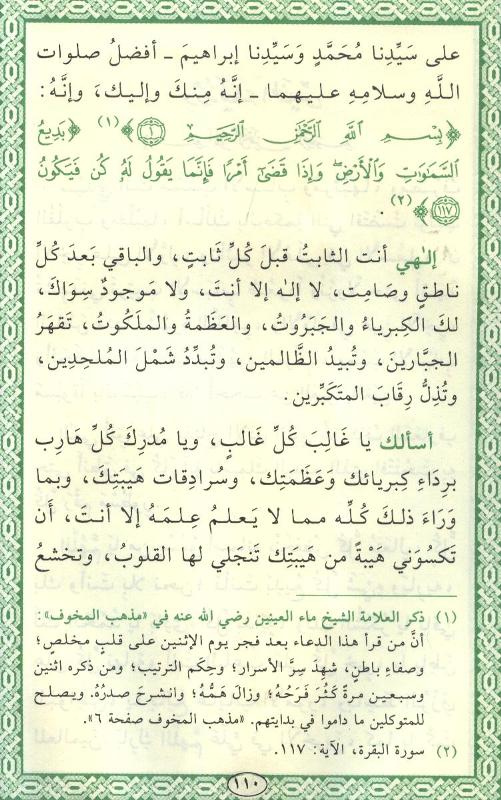 على سَيِّدِنا مُحَمَّدٍ وَسَيِّدِنا إبراهيمَ ـ أفضلُ صلوات
اللَّهِ وسلامِهِ عليهما ـ إنَّهُ مِنكَ وإليكَ، وإنَّهُ:
﴿بِسْمِ اللَّهِ الرَّحْمَٰنِ الرَّحِيمِ ۝١﴾(١) ﴿بَدِيعُ
السَّمَٰوَٰتِ وَالْأَرْضِ ۖ وَإِذَا قَضَىٰٓ أَمْرًا فَإِنَّمَا يَقُولُ لَهُۥ كُن فَيَكُونُ
۝١١٧﴾(٢).
إلٰهي أنت الثابتُ قبلَ كُلِّ ثابتٍ، والباقي بَعدَ كُلِّ
ناطقٍ وصَامِتٍ، لا إلٰهَ إلا أنتَ، ولا مَوجودَ سِوَاكَ،
لكَ الكِبرياءُ والجَبَرُوتُ، والعَظَمةُ والملَكُوتُ، تَقهَرُ
الجبَّارينَ، وتُبيدُ الظَّالمين، وتُبدِّدُ شَمْلَ المُلحِدِين،
وتُذِلُّ رِقَابَ المتَكَبِّرين.
أسألك يا غَالِبَ كُلِّ غَالبٍ، ويا مُدرِكَ كُلِّ هَارِب
برِدَاءِ كِبريائك وَعَظَمَتِك، وسُرادِقات هَيبَتِكَ، وبما
وَرَاءَ ذلكَ كُلِّه مما لا يَعلمُ عِلمَهُ إلا أنتَ، أَن
تَكسُوَني هَيْبَةً من هَيبَتِك تَنجَلي لها القلوبُ، وتَخشَعُ
(١) ذكر العلامة الشيخ ماء العينين رضي الله عنه في «مذهب المخوف»:
أنَّ من قرأ هذا الدعاء بعد فجر يوم الإثنين على قلبٍ مخلص؛
وصفاءِ باطنٍ، شهِدَ سِرَّ الأسرار؛ وحِكَم الترتيب؛ ومن ذكره اثنين
وسبعين مرةً كَثُرَ فَرَحُهُ؛ وزال هَمُّهُ؛ وانشرحَ صدرُهُ. ويصلح
للمتوكلين ما داموا في بدايتهم. «مذهب المخوف صفحة ٦».
(٢) سورة البقرة، الآية: ١١٧.
١١٠